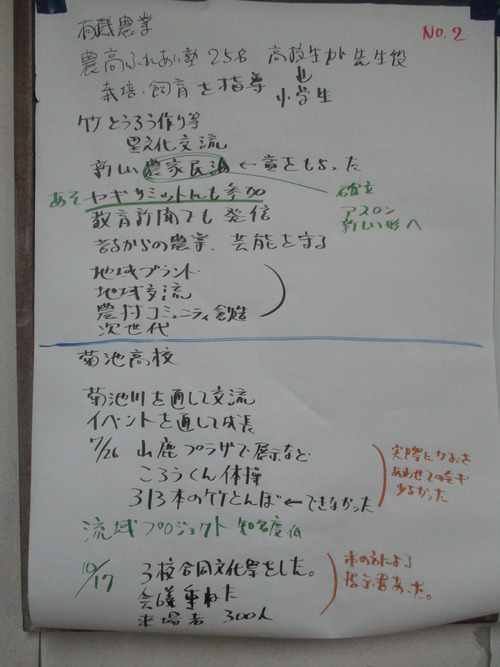 No.2
有機農業
農高ふれあい塾 25名 高校生が 先生役
栽培・飼育を指導 ↓ 小学生
竹とうろう作り等
異文化交流
新しい 農家民泊 ← 賞をもらった
あそ ヤギサミットにも参加
教育新聞でも 発信
昔からの農業、芸能を守る
新しい形へ
地域ブランド
地域交流
農村コミュニティ創造
次世代
菊池高校
菊池川を通して交流
イベントを通して成長
7/26 山鹿プラザで展示など
ころうくん体操
313本の竹とんぼ ← できなかった
実際に
少なかった
流域プロジェクト 知名度低
10/17 3校合同文化祭をした。
会議重ねた
来場者 300人